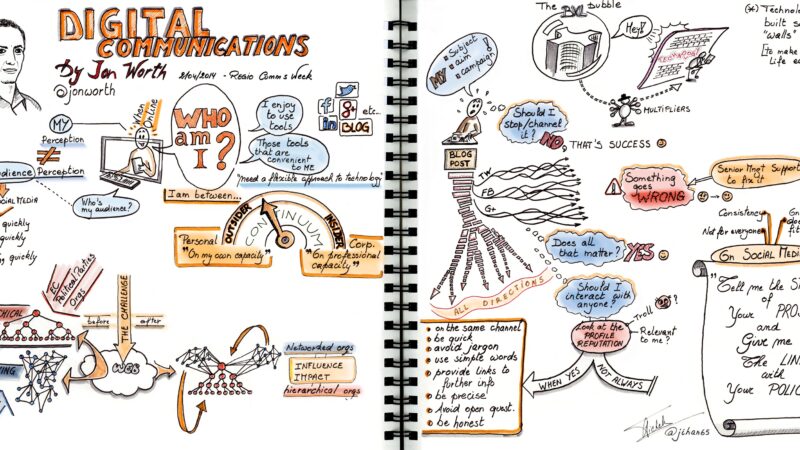 DIGITAL
COMMUNICATIONS
By Jon Worth
@jonworth
- Regio Comms Week
When
OnLine
MY
Perception
≠
Perception
WHO
am
I?
I enjoy
to use
tools
Those tools
that are
convenient
to ME
f
g+
etc...
in
BLOG
"need a flexible approach to technology"
Who's
my audience?
quickly
quickly
quickly
I am between...
OUTSIDER
CONTINUUM
INSIDER
Personal
"On my own capacity"
Corp.
"On professional
capacity"
EC
Political Parties
Orgs
THE CHALLENGE
before
after
Networked orgs
INFLUENCE
IMPACT
hierarchical orgs
The BXL bubble
Hey!
MULTIPLIERS
(*) Technolo
built s
"walls"
to make
Life ea
MY
*Subject
*aim
*campaign
!
BLOG
POST
Should I
stop/channel
it?
NO, THAT'S SUCCESS
TW
FB
G+
ALL DIRECTIONS
Something
goes
WRONG
Senior Mngt Support
to fix it
Consistency
Not for everyone
Does all
that matter?
YES
Should I
interact with
anyone?
Troll
?
Look at the
PROFILE
REPUTATION
Relevant
to me?
WHEN YES
NOT ALWAYS
on the same channel
be quick
avoid jargon
use simple words
provide links to
further info
be precise
Avoid open quest.
be honest
On SOCIAL MEDI
"Tell me the S
of
Your PRO
and
Give me
The LIN
with
Your POLIC
@jthan65